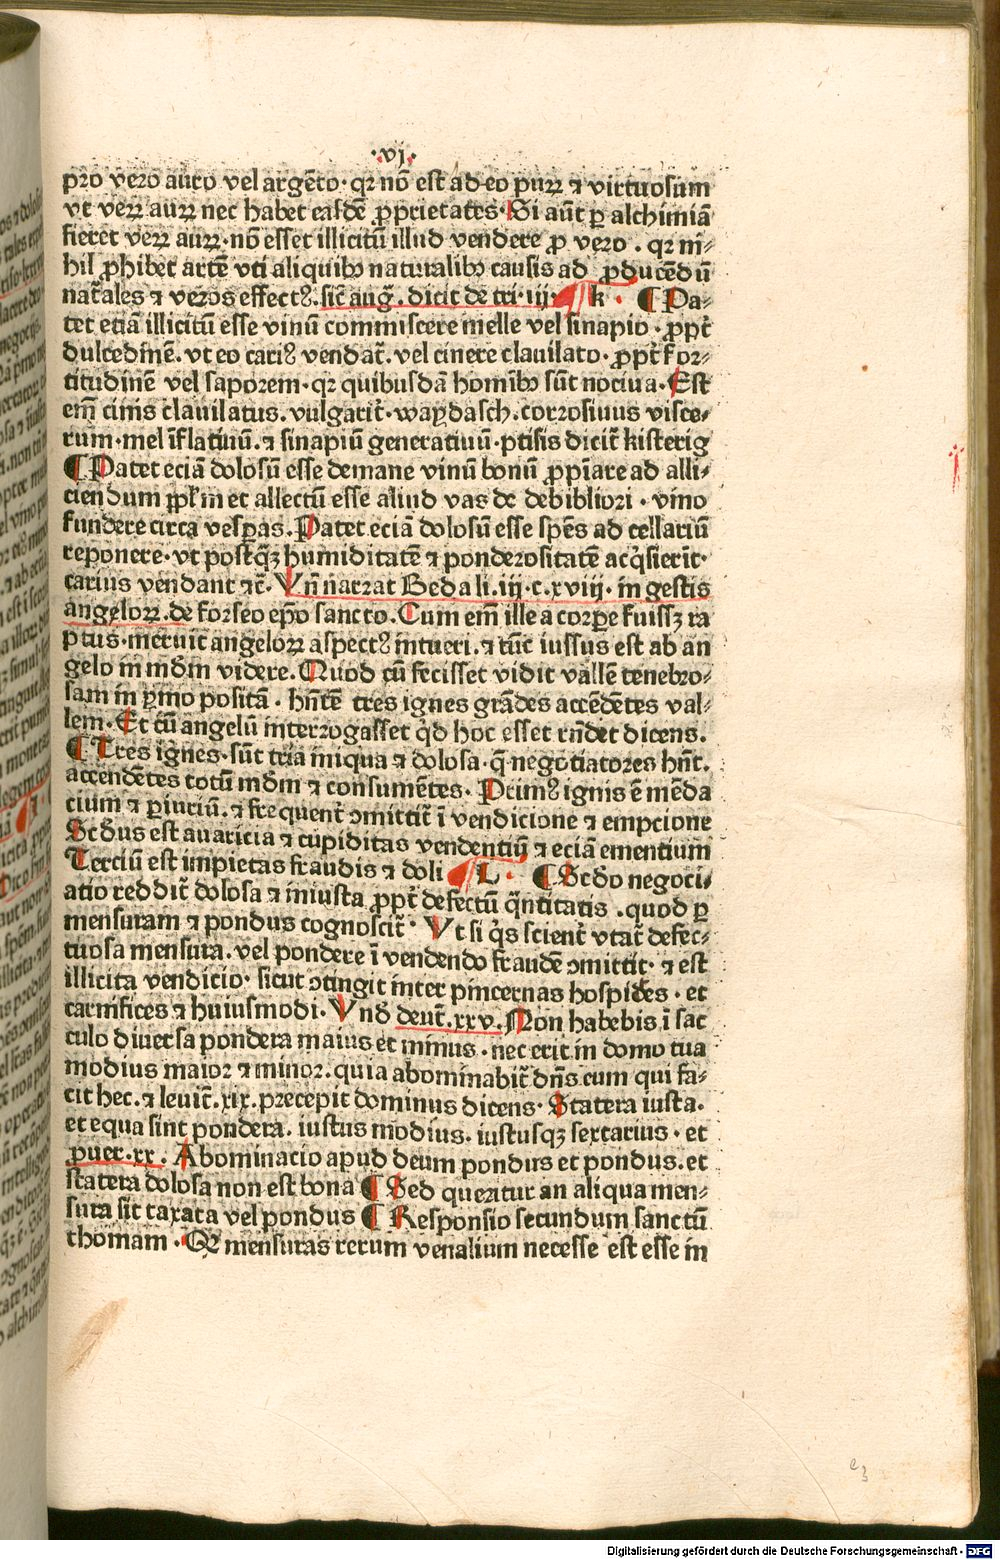 ·vj·
pro vero auro vel argēto· qꝛ nō est ad eo puꝝ ⁊ virtuosum
vt veꝝ auꝝ nec habet easdē ꝓprietates· Si aūt ꝑ alchimiā
fieret veꝝ auꝝ· nō esset illicitū illud vendere ꝓ vero . qꝛ ni⸗
hil ꝓhibet artē vti aliquibꝰ naturalibꝰ causis ad ꝓducēdū
nat̄ales ⁊ veros effectꝰ. sic̄ auḡ. dicit de tri· iij· ¶ k · ¶ Pa⸗
tet etiā illicitū esse vinū commiscere melle vel sinapio · ꝓpt̄
dulcedinē. vt eo cariꝰ vendat̄. vel cinere clauilato· ꝓpt̄ for⸗
titudinē vel saporem· qꝛ quibusdā homībꝰ sūt nociua· Est
em̄ cinis clauilatus. vulgarit̄· waydasch. corrosiuus visce⸗
rum· mel īflatiuū. ⁊ sinapiū generatiuū· ptisis dicit̄ kisterig
¶ Patet eciā dolosū esse de mane vinū bonū ꝓpīare ad alli⸗
ciendum ꝓpl̄m et allectū esse aliud vas de debibliori · vino
fundere circa vesꝑas. Patet eciā dolosū esse spēs ad cellariū
reponere· vt postqꝫ humiditatē ⁊ ponderositatē acq̇sierit̄·
carius vendant ⁊c̄. Vn̄ narrat Beda li. iij· c. xviij· in gestis
angeloꝝ. de forseo ep̄o sancto. Cum em̄ ille a corꝑe fuissꝫ ra
ptus· meruit angeloꝝ aspectꝰ intueri. ⁊ tūc iussus est ab an
gelo in mūdm̄ videre. Quod cū fecisset vidit vallē tenebro⸗
sam in p̄mo positā · hn̄tē tres ignes grādes accēdētes val⸗
lem· Et cū angelū interrogasset q̇d hoc esset rn̄det dicens.
¶ Tres ignes· sūt tria iniqua ⁊ dolosa· q̄ negotiatores hn̄t.
accendētes totū mūdm̄ ⁊ consumētes· Primꝰ ignis ē mēda
cium ⁊ ꝑiuriū. ⁊ frequent̄ ꝯmittit̄ ī vendicione ⁊ empcione
Scd̄us est auaricia ⁊ cupiditas vendentiū ⁊ eciā ementium
Terciū est impietas fraudis ⁊ doli ¶ L · ¶ Scd̄o negoci⸗
atio reddit̄ dolosa ⁊ iniusta ꝓpt̄ defectū q̄ntitatis . quod ꝑ
mensuram ⁊ pondus cognoscit̄· Vt si q̇s scient̄ vtat̄ defec⸗
tuosa mensura. vel pondere ī vendendo fraudē ꝯmittit· ⁊ est
illicita vendicio· sicut ꝯtingit inter pincernas hospides · et
carnifices ⁊ huiusmodi. Vnd̄ deut̄. xxv. Non habebis ī sac
culo diuersa pondera maius et minus . nec erit in domo tua
modius maior ⁊ minor. quia abominabit̄ dn̄s eum qui fa⸗
cit hec. ⁊ leuit̄. xix. precepit dominus dicens· Statera iusta.
et equa sint pondera. iustus modius. iustusqꝫ sextarius · et
puer. xx. Abominacio apud deum pondus et pondus. et
statera dolosa non est bona ¶ Sed queritur an aliqua men⸗
sura sit taxata vel pondus ¶ Responsio secundum sanctū
thomam · Qꝛ mensuras rerum venalium necesse est esse in
e3
Digitalisierung gefördert durch die Deutsche Forschungsgemeinschaft - DFG